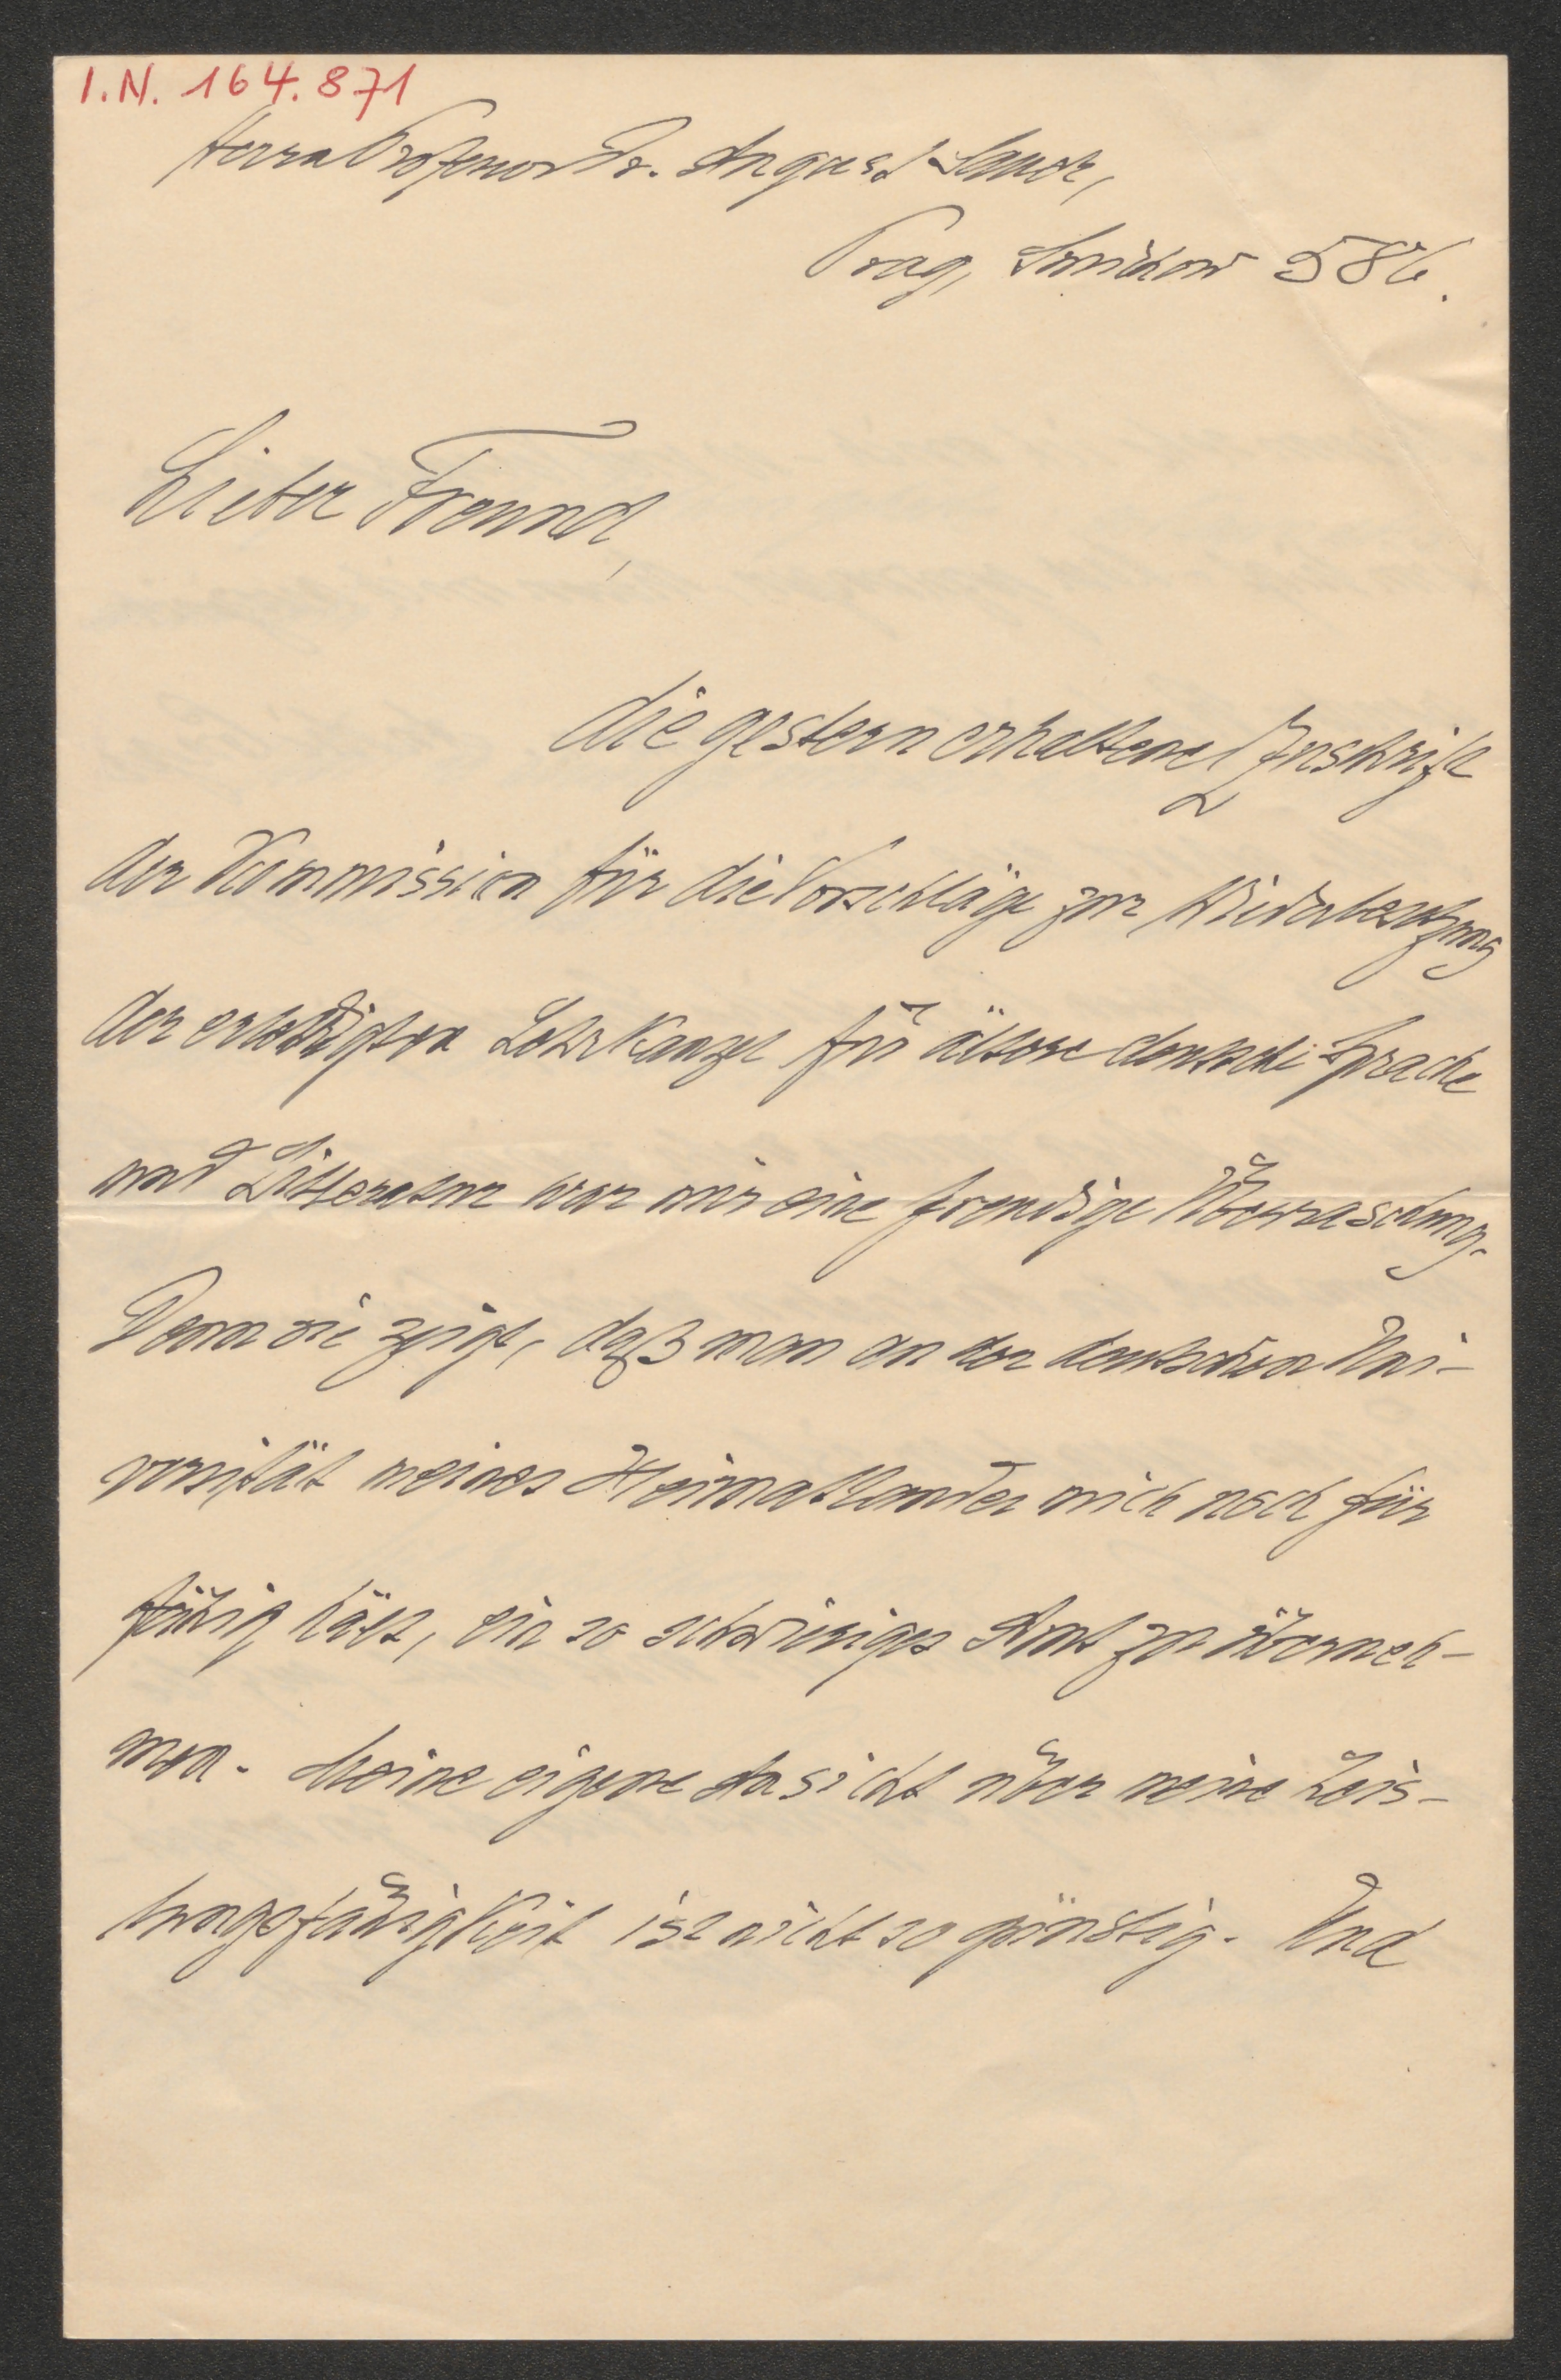 I.N. 164.871
Herrn Professor Dr. August Sauer,
Prag, Smichow 586.
Lieber Freund,
die gestern erhaltene Zuschrift
der Kommission für die Vorschläge zur Wiederbesetzung
der erledigten Lehrkanzel für ältere deutsche Sprache
und Litteratur war mir eine freudige Überraschung.
Denn sie zeigt, daß man an der deutschen Uni-
versität meines Heimatlandes mich noch für
fähig hält, ein so schwieriges Amt zu überneh-
men. Meine eigene Ansicht über meine Leis-
tungsfähigkeit ist nicht so günstig. Und